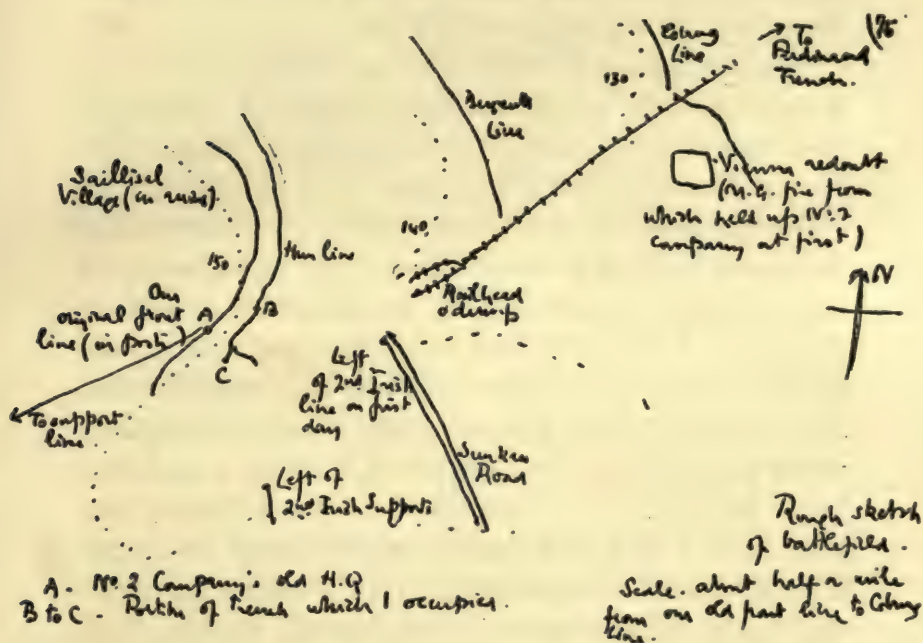 Coburg
Line
To
Trench.
175
130
Bayreuth
Line
Saillisel
Village (in ruins).
Vienna redoubt
(M.G. fire from
which held up No. 2
company at first)
140
150
Hun line
N
Our
original front
line (in posts)
A
B
C
Railhead
& dump
To support
line
Left
of 2nd Irish
line on first
day
Sunken
Road
Left of
2nd Irish Support
Rough sketch
of battlefield.
A. No. 2 Company's old H.Q
B to C. Portion of trench which I occupied.
Scale. about half a mile
from our old front line to Coburg
line.